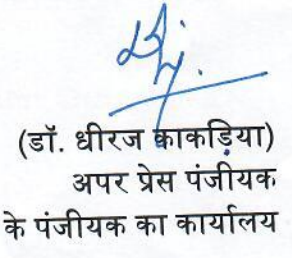 (डॉ. धीरज काकड़िया)
अपर प्रेस पंजीयक
के पंजीयक का कार्यालय